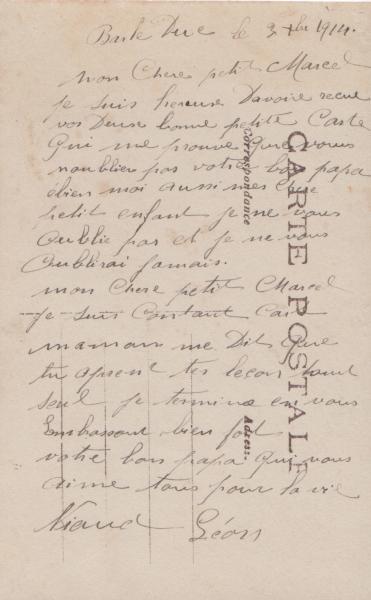 Barle Duc le 3 xbre 1914.
mon Chere petit Marcel
je suis hereuse Davoire recue
vos Deuse bonne petite Carte
Qui me prouve Que vous
noublier pas votre bon papa
ébien moi aussi mes Chere
petit enfant je ne vous
oublie pas et je ne vous
Oublirai jamais.
mon Chere petit Marcel
je suis Constant Cart
maman me Dit Que
tu aprent tes leçon tout
seul je termine en vous
Embrassant bien fort
votre bon papa Qui vous
aime tous pour la vie
Léon
CARTE POSTALE
Correspondance
Adresse